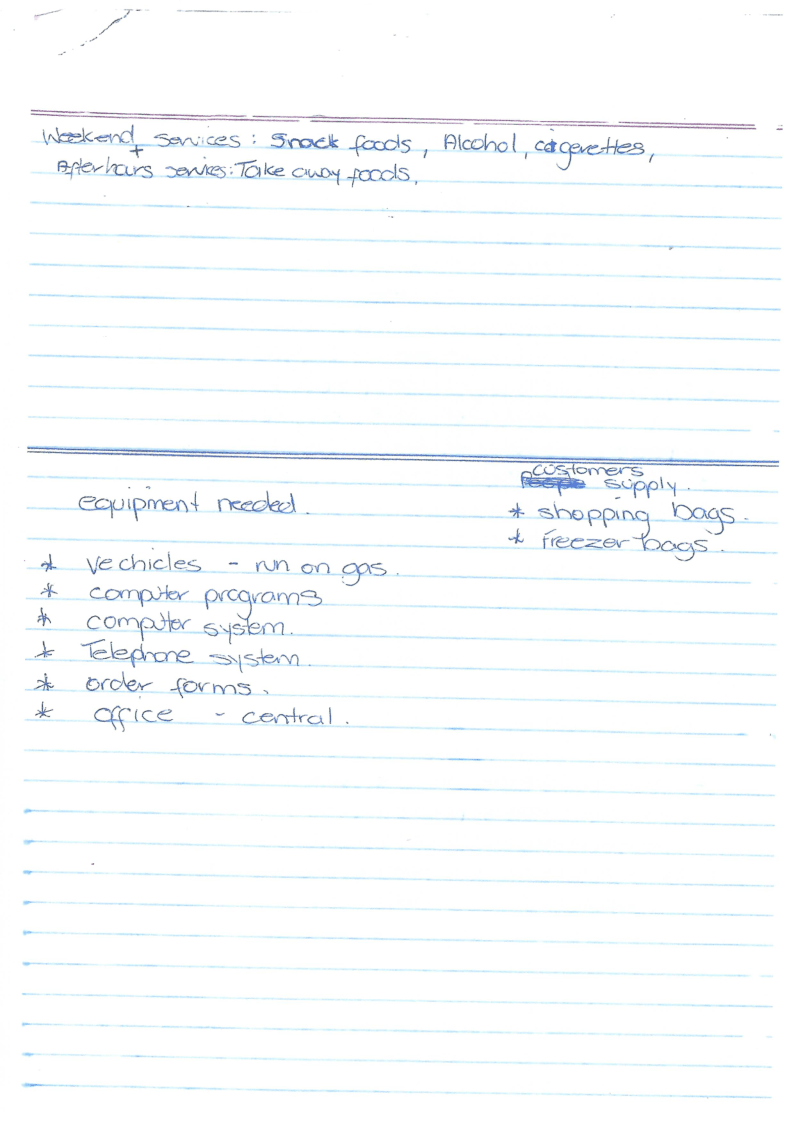 Weekend services : Snack foods, Alcohol, cigerettes,
+
After hours services: Take away foods.
customers
supply.
equipment needed.
* shopping bags.
* freezer bags.
* vechicles - run on gas.
* computer programs
* computer system.
* Telephone system.
* order forms.
* office - central.